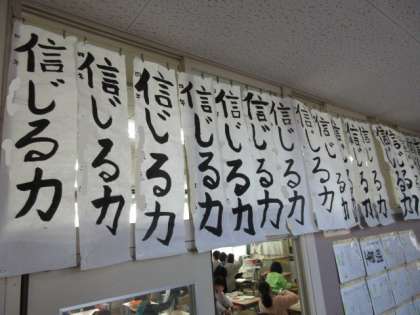 信じる力
信じる力
信じる力
信じる力
信じる力
信じる力
信じる力
信じる力
信じる力
信じる力
信じる力
信じる力
信じる力
信じる力